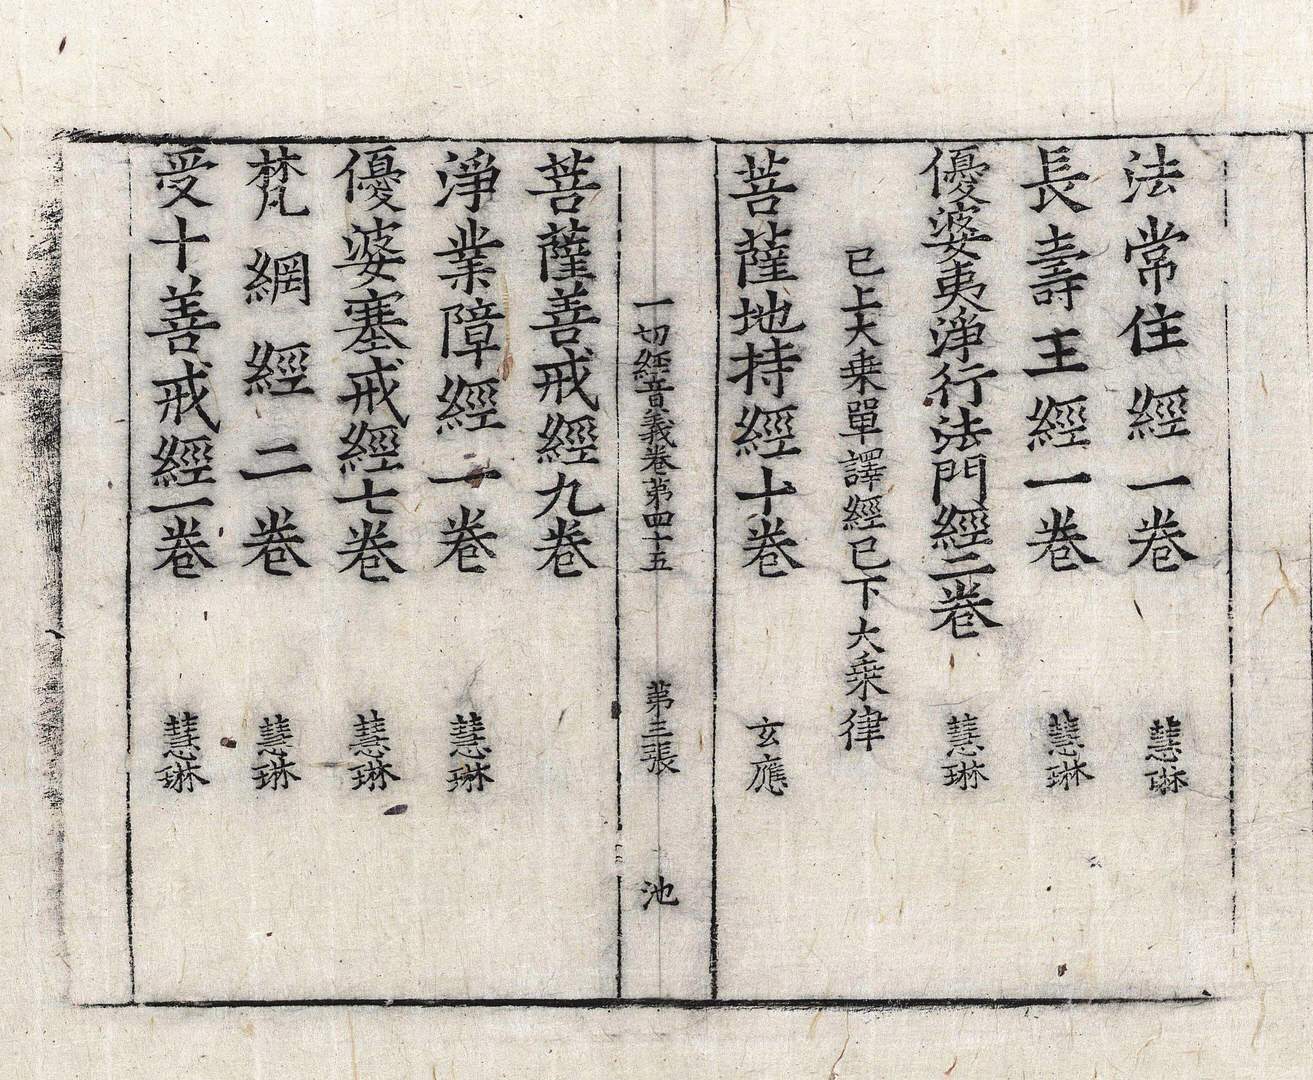 法常住經一卷 慧琳
長壽王經一卷 慧琳
優婆夷淨行法門經二卷 慧琳
已上大乘單譯經已下大乘律
菩薩地持經十卷 玄應
一切經音義卷第四十五 第三張 池
菩薩善戒經九卷
淨業障經一卷 慧琳
優婆塞戒經七卷 慧琳
梵網經二卷 慧琳
受十善戒經一卷 慧琳